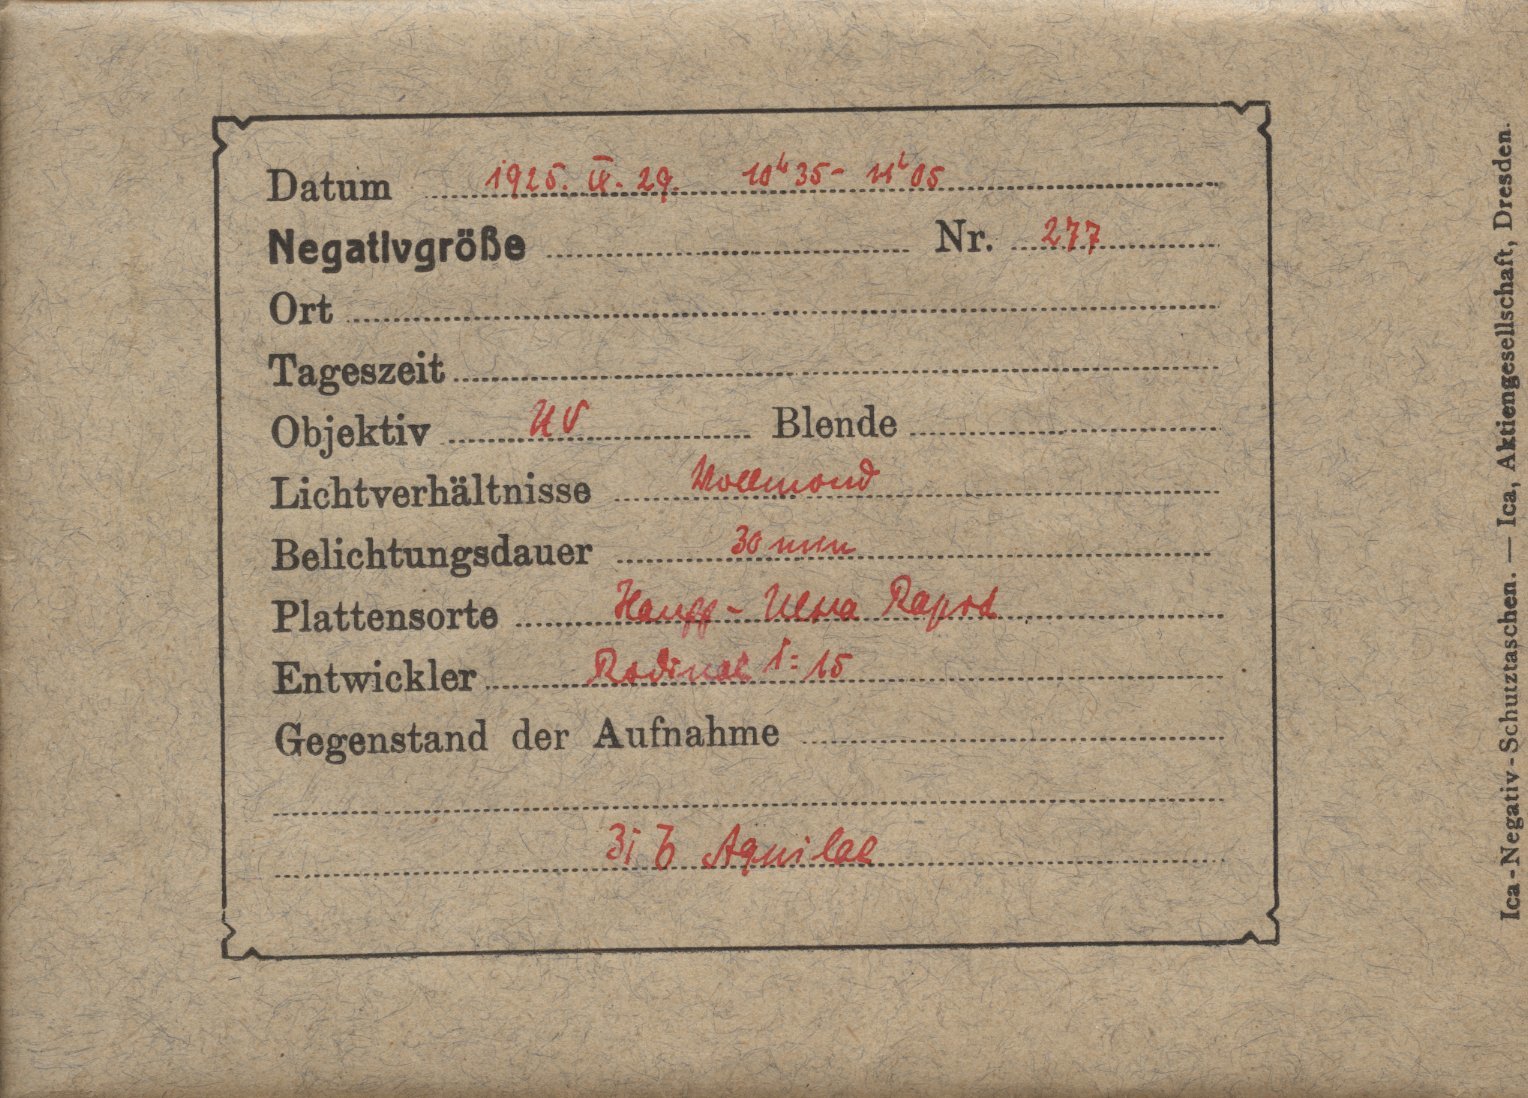 Datum 1925. IX. 29. 10h 35 - 11h 05
Negativgröße Nr. 277
Ort
Tageszeit
Objektiv UV Blende
Lichtverhältnisse Vollmond
Belichtungsdauer 30 min
Plattensorte Hauff - Ultra Rapid
Entwickler Rodinal 1:15
Gegenstand der Aufnahme
Aquilae
Ica-Negativ-Schutztaschen. — Ica, Aktiengesellschaft, Dresden.